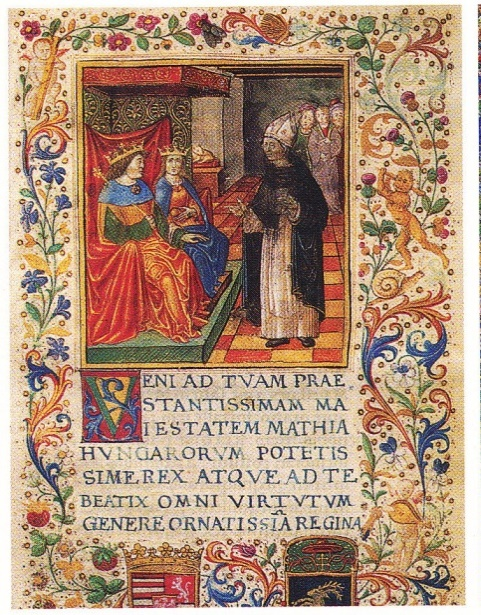 VENI AD TVAM PRAE
STANTISSIMAM MA
IESTATEM MATHIA
HVNGARORVM POTETIS
SIME REX ATQVE AD TE
BEATIX OMNI VIRTVTVM
GENERE ORNATISSIA̅ REGINA